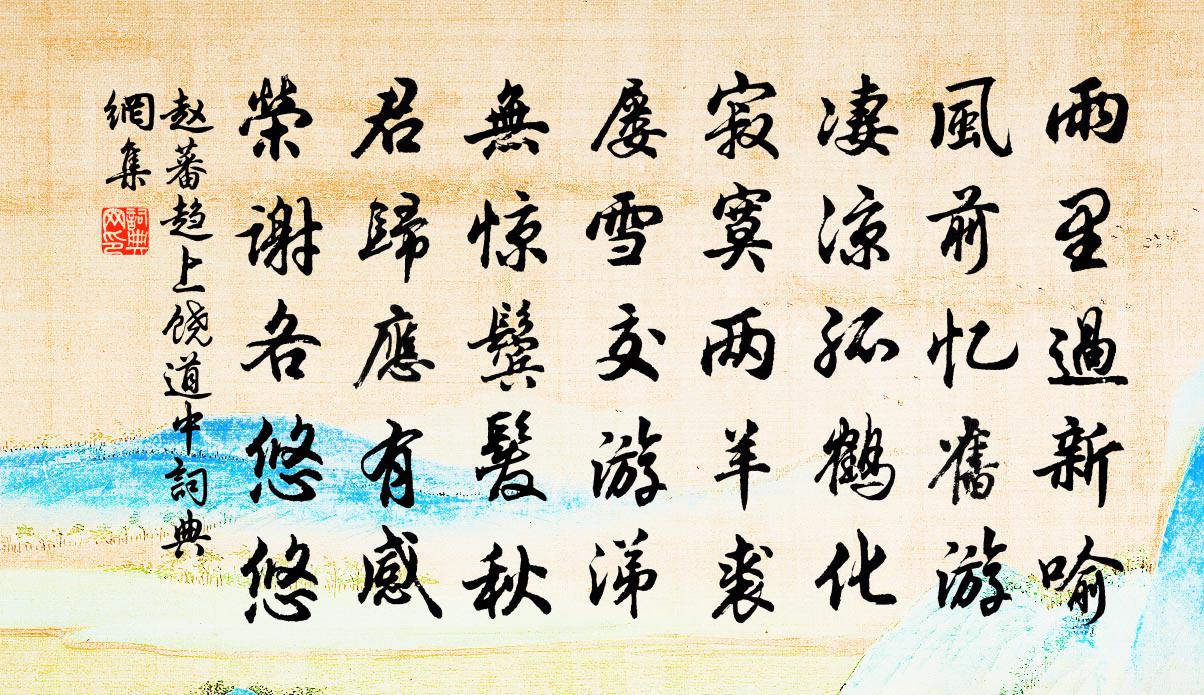 雨里過新喻
風前忆舊游
凄涼孤鶴化
寂寞两羊裘
屡雪交游涕
無惊鬓髮秋
君歸應有感
榮謝各悠悠
赵蕃趋上饶道中詞典
網集
詞典网印